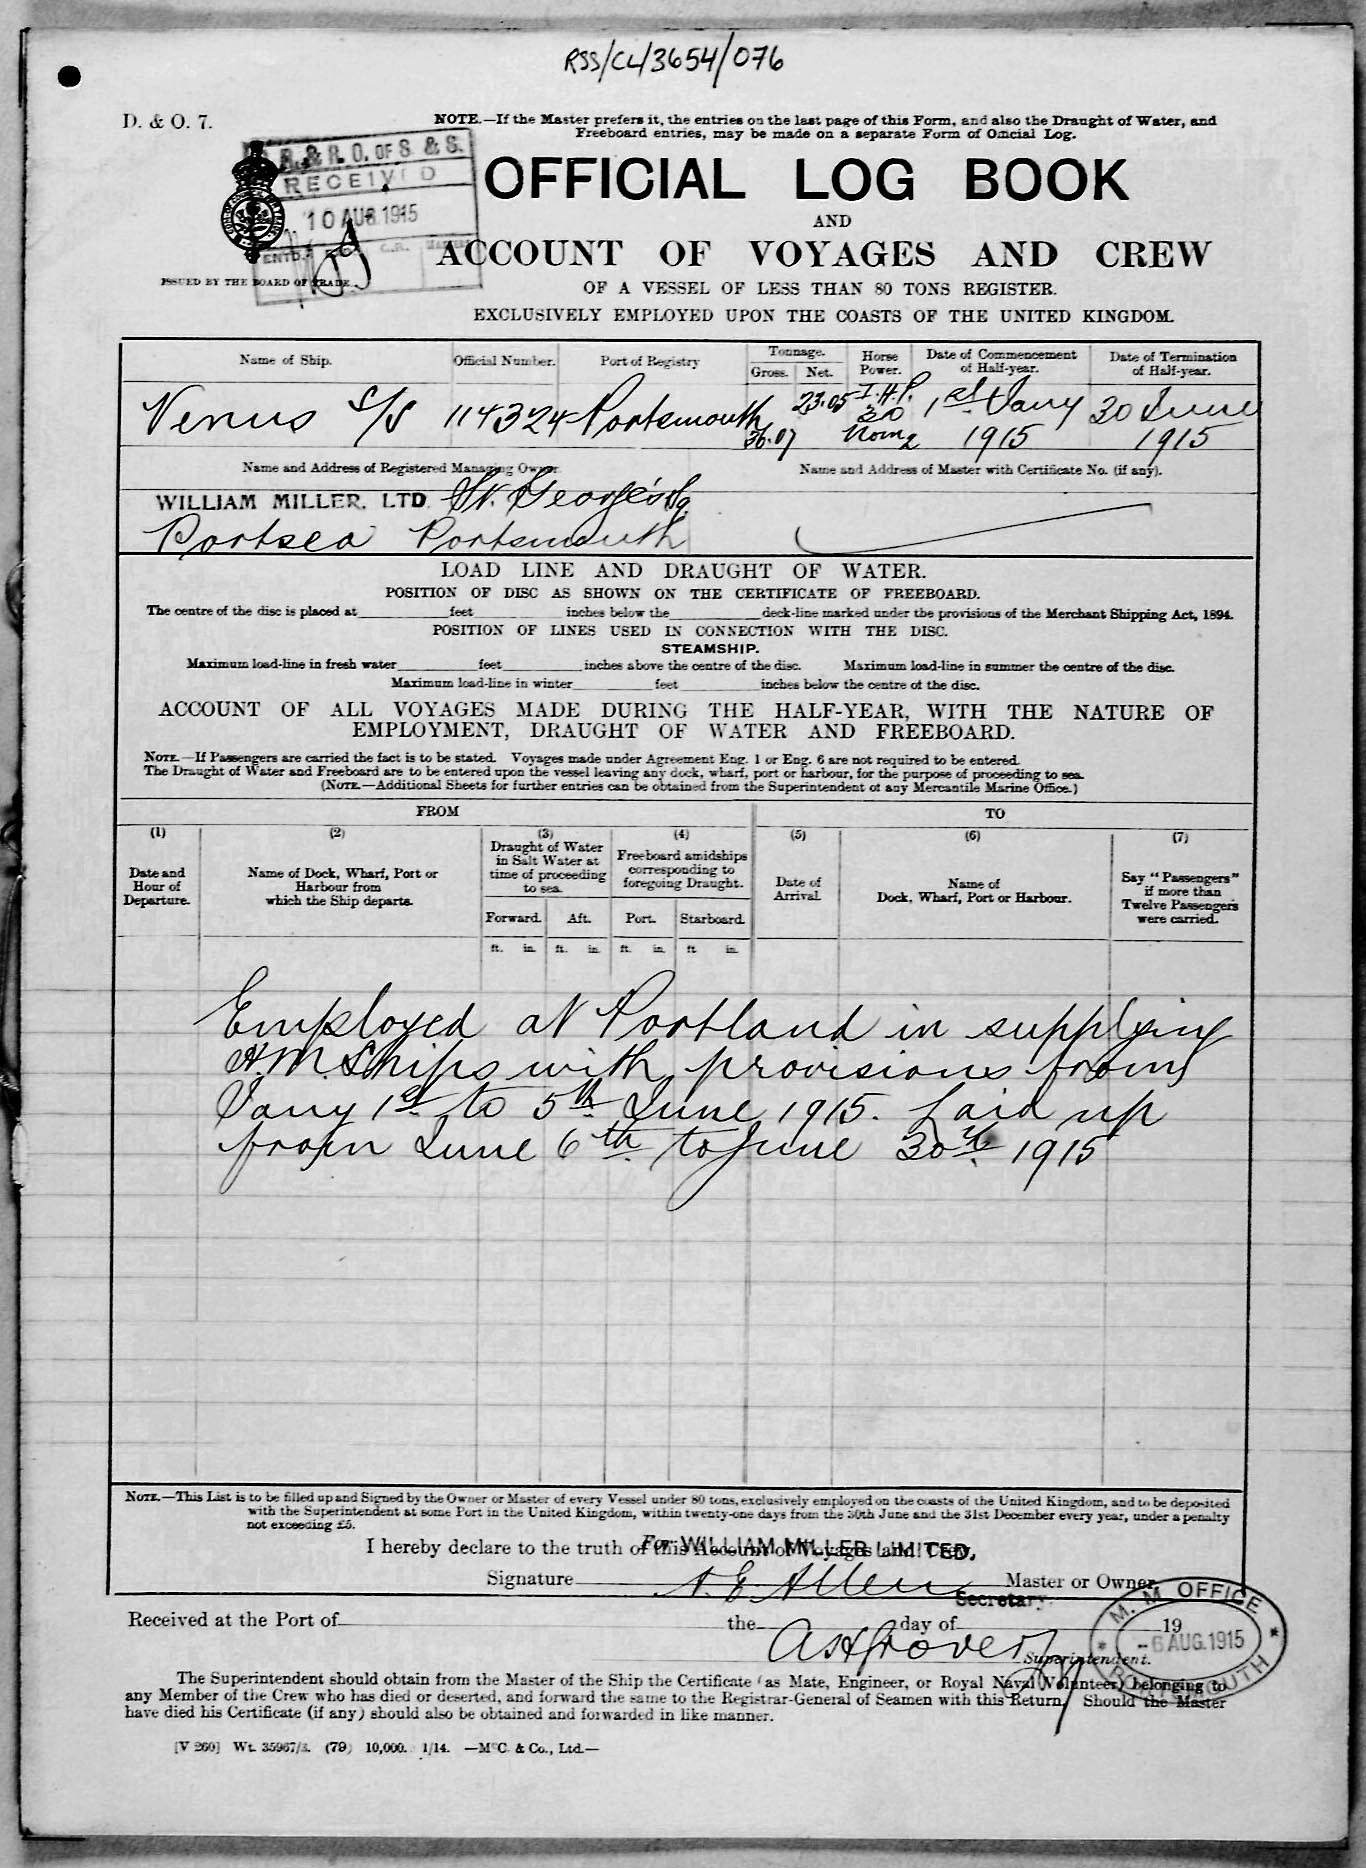 RSS/CL/3654/076
D. & O. 7.
NOTE.—If the Master prefers it, the entries on the last page of this Form, and also the Draught of Water, and
Freeboard entries, may be made on a separate Form of Official Log.
R. & R. O. OF S. & S.
RECEIVED
10 AUG 1915
ENTD.
C.R.
ISSUED BY THE BOARD OF TRADE.
OFFICIAL LOG BOOK
AND
ACCOUNT OF VOYAGES AND CREW
OF A VESSEL OF LESS THAN 80 TONS REGISTER.
EXCLUSIVELY EMPLOYED UPON THE COASTS OF THE UNITED KINGDOM.
Name of Ship. Official Number. Port of Registry Tonnage. Gross. Net. Horse Power. Date of Commencement of Half-year. Date of Termination of Half-year.
Venus S/S 114324 Portsmouth 36.07 23.05 I.H.P. 30 Nom 2 1st Jany 1915 30 June 1915
Name and Address of Registered Managing Owner. Name and Address of Master with Certificate No. (if any).
WILLIAM MILLER, LTD. St. George's Sq.
Portsea Portsmouth
LOAD LINE AND DRAUGHT OF WATER.
POSITION OF DISC AS SHOWN ON THE CERTIFICATE OF FREEBOARD.
The centre of the disc is placed at feet inches below the deck-line marked under the provisions of the Merchant Shipping Act, 1894.
POSITION OF LINES USED IN CONNECTION WITH THE DISC.
STEAMSHIP.
Maximum load-line in fresh water feet inches above the centre of the disc. Maximum load-line in summer the centre of the disc.
Maximum load-line in winter feet inches below the centre of the disc.
ACCOUNT OF ALL VOYAGES MADE DURING THE HALF-YEAR, WITH THE NATURE OF
EMPLOYMENT, DRAUGHT OF WATER AND FREEBOARD.
NOTE.—If Passengers are carried the fact is to be stated. Voyages made under Agreement Eng. 1 or Eng. 6 are not required to be entered.
The Draught of Water and Freeboard are to be entered upon the vessel leaving any dock, wharf, port or harbour, for the purpose of proceeding to sea.
(NOTE.—Additional Sheets for further entries can be obtained from the Superintendent of any Mercantile Marine Office.)
FROM TO
(1) (2) (3) (4) (5) (6) (7)
Date and Hour of Departure.
Name of Dock, Wharf, Port or Harbour from which the Ship departs.
Draught of Water in Salt Water at time of proceeding to sea.
Freeboard amidships corresponding to foregoing Draught.
Date of Arrival.
Name of Dock, Wharf, Port or Harbour.
Say "Passengers" if more than Twelve Passengers were carried.
Forward. Aft. Port. Starboard.
ft. in. ft. in. ft. in. ft. in.
Employed at Portland in supplying
H.M. Ships with provisions from
Jany 1st to 5th June 1915. Laid up
from June 6th to June 30th 1915
NOTE.—This List is to be filled up and Signed by the Owner or Master of every Vessel under 80 tons, exclusively employed on the coasts of the United Kingdom, and to be deposited
with the Superintendent at some Port in the United Kingdom, within twenty-one days from the 30th June and the 31st December every year, under a penalty
not exceeding £5.
I hereby declare to the truth of this Account of Voyages and Crew.
For WILLIAM MILLER LIMITED.
Signature A. E. Allen Master or Owner.
Secretary.
Received at the Port of the day of 19
Superintendent.
M. M. OFFICE
-6 AUG. 1915
PORTSMOUTH
The Superintendent should obtain from the Master of the Ship the Certificate as Mate, Engineer, or Royal Naval Volunteer, belonging to
any Member of the Crew who has died or deserted, and forward the same to the Registrar-General of Seamen with this Return. Should the Master
have died his Certificate (if any) should also be obtained and forwarded in like manner.
[V 260] Wt. 35967/3. (79) 10,000. 1/14. —McC. & Co., Ltd.—